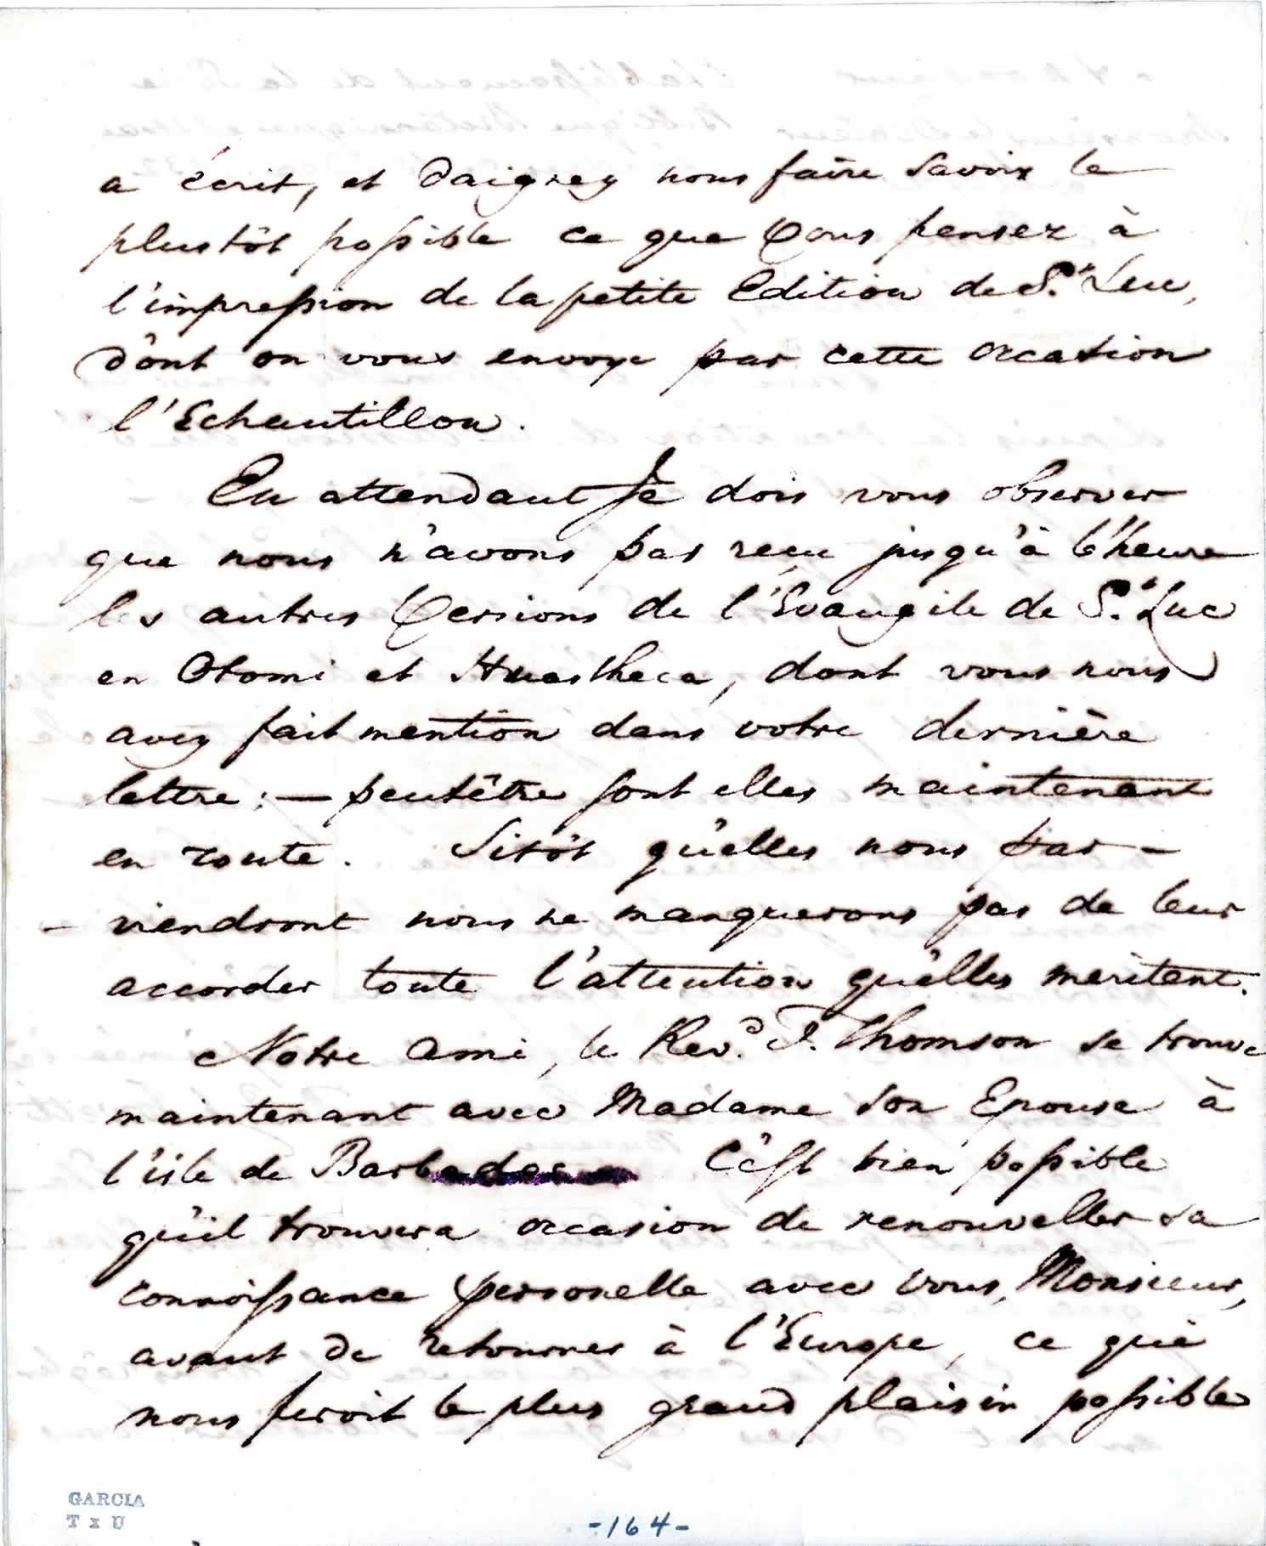 a écrit, et daignez nous faire savoir le
plustôt possible ce que Vous pensez à
l'impression de la petite Edition de St. Luc,
dont on vous envoye par cette occasion
l'Echantillon.
En attendant Je dois vous observer
que nous n'avons pas reçu jusqu'à l'heure
les autres Versions de l'Evangile de St. Luc
en Otomi et Huastheca, dont vous nous
avez fait mention dans votre dernière
lettre; — peutêtre sont elles maintenant
en route. Sitôt qu'elles nous par-
-viendront nous ne manquerons pas de leur
accorder toute l'attention qu'elles meritent.
Notre ami, le Revd. J. Thomson se trouve
maintenant avec Madame son Epouse à
l'isle de Barbades C'est bien possible
qu'il trouvera occasion de renouveller sa
connoissance personelle avec vous, Monsieur,
avant de retourner à l'Europe, ce que
nous feroit le plus grand plaisir possible
GARCIA
TxU
-164-